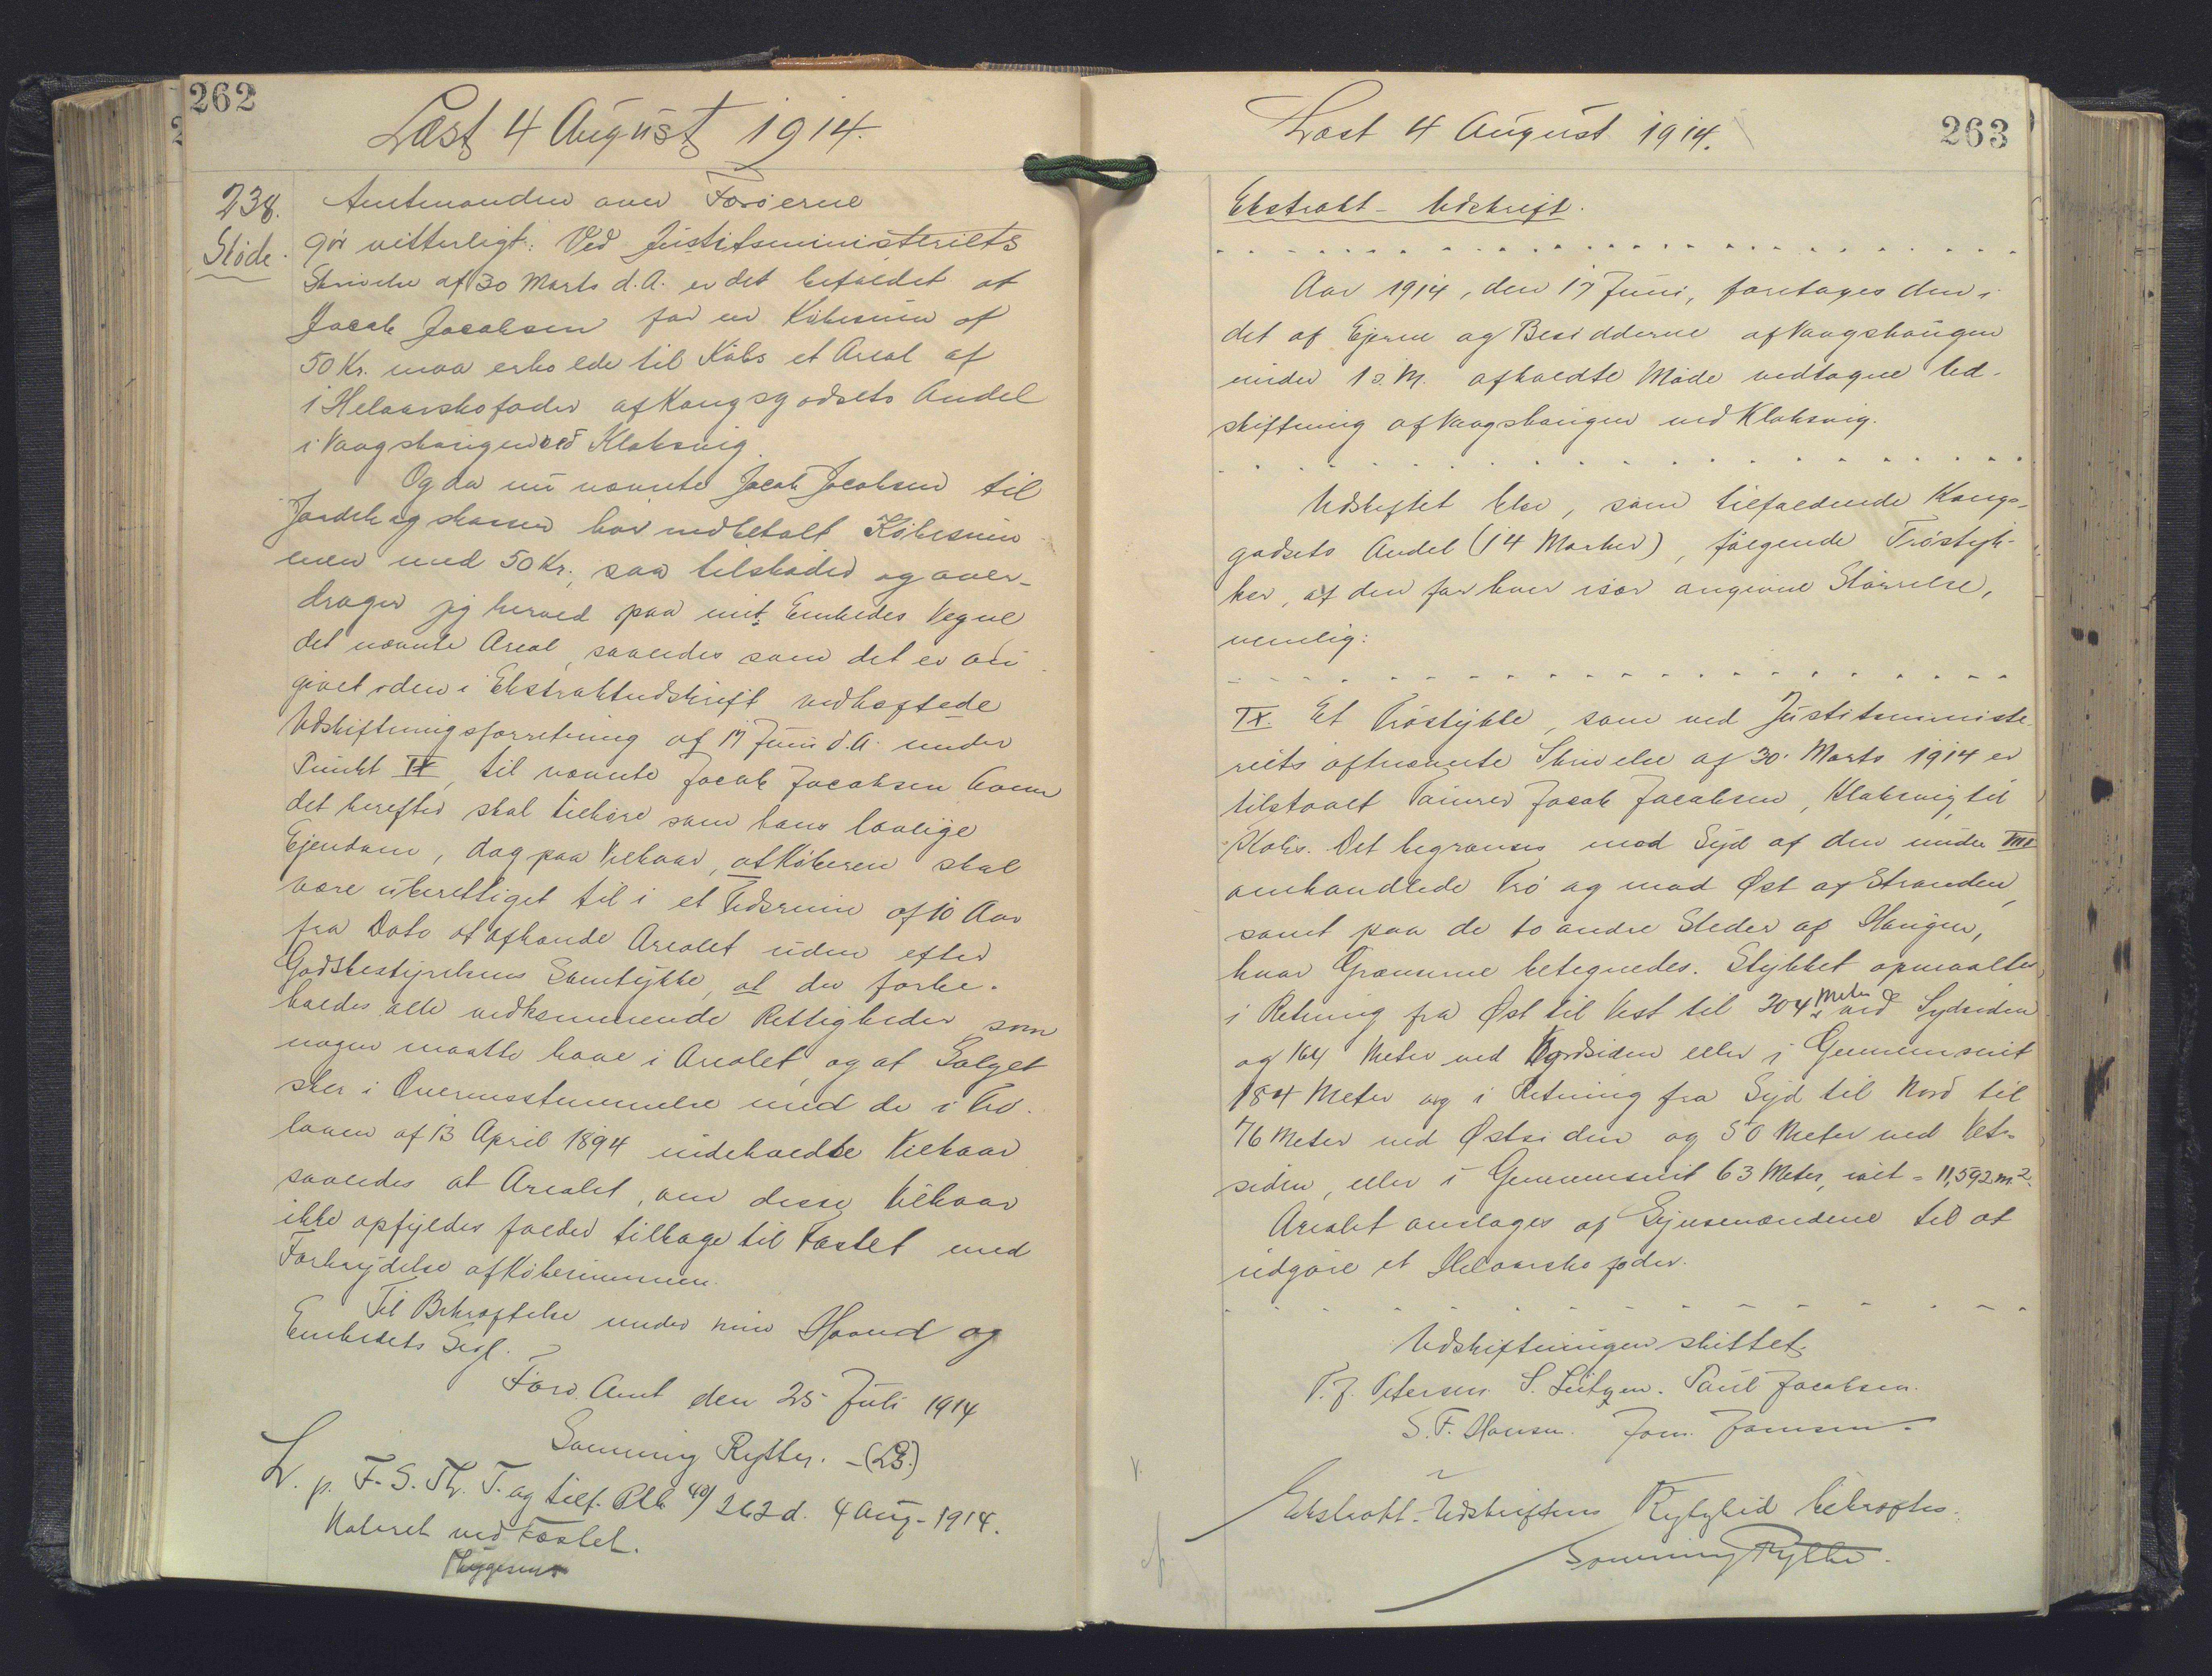 262
Læst 4 August 1914.
238.
Skøde.
Amtmanden over Færøerne
gør vitterligt: Ved Justitsministeriets
Skrivelse af 30 Marts d.A. er det befalet at
Jacob Jacobsen for en Købesum af
50 Kr. maa erholde til Købs et Areal af
1 Helaarskofoder af Kongsgodsets Andel
i Vaagshaugen ved Klaksvig.
Og da nu nævnte Jacob Jacobsen til
Jordebogskassen har indbetalt Købesum
men med 50 Kr., saa tilskøder og over-
drager jeg herved paa mit Embedes Vegne
det nævnte Areal, saaledes som det er an
givet i den i Ekstraktudskrift vedhæftede
Udskiftningsforretning af 17 Juni d.A. under
Punkt IX, til nævnte Jacob Jacobsen hvem
det herefter skal tilhøre som hans lovlige
Ejendom, dog paa Vilkaar, at Køberen skal
være uberettiget til i et Tidsrum af 10 Aar
fra Dato at afhænde Arealet uden efter
Godsbestyrelsens Samtykke, at der forbe-
holdes alle vedkommende Rettigheder som
nogen maatte have i Arealet, og at Salget
sker i Overensstemmelse med de i Trø-
loven af 13 April 1894 indeholdte Vilkaar
saaledes at Arealet, om disse Vilkaar
ikke opfyldes falder tilbage til Fæstet med
Forbrydelse af Købesummen.
Til Bekræftelse under min Haand og
Embedets Segl.
Færø Amt den 25 Juli 1914
Sørning Rytter. - (L.S.)
L. p. F. S. Th. T. og tilf. Plb. 40/262 d. 4 Aug. 1914.
Noteret ved Fæstet.
263
Læst 4 August 1914.
Ekstrakt-Udskrift.
Aar 1914, den 17 Juni, foretages den i
det af Ejerne og Besidderne af Vaagshaugen
under 1 s.M. afholdte Møde vedtagne Ud-
skiftning af Vaagshaugen ved Klaksvig.
Udskiftet blev, som tilfaldende Kongs-
godsets Andel (14 Marker), følgende Trøstyk-
ker, af den for hver især angivne Størrelse,
nemlig:
IX. Et Trøstykke, som ved Justitsministe-
riets oftnævnte Skrivelse af 30. Marts 1914 er
tilstaaet Jacob Jacobsen, Klaksvig, til
Købs. Det begrænses mod Syd af den under VIII
omhandlede Trø og mod Øst af Stranden,
samt paa de to andre Steder af Haugen,
hvor Grænserne betegnedes. Stykket opmaaltes
i Retning fra Øst til Vest til 204 Meter ved Sydsiden
og 164 Meter ved Nordsiden eller i Gennemsnit
184 Meter og i Retning fra Syd til Nord til
76 Meter ved Østsiden og 50 Meter ved Vest-
siden, eller i Gennemsnit 63 Meter, ialt = 11,592 m².
Arealet ansloges af Synsmændene til at
udgøre et Helaarskofoder.
Udskiftningen sluttet.
P. J. Petersen. S. Lützen. Paul Jacobsen.
S. F. Hansen. Joen. Joensen.
Ekstrakt-Udskriftens Rigtighed bekræftes.
Sørning Rytter.